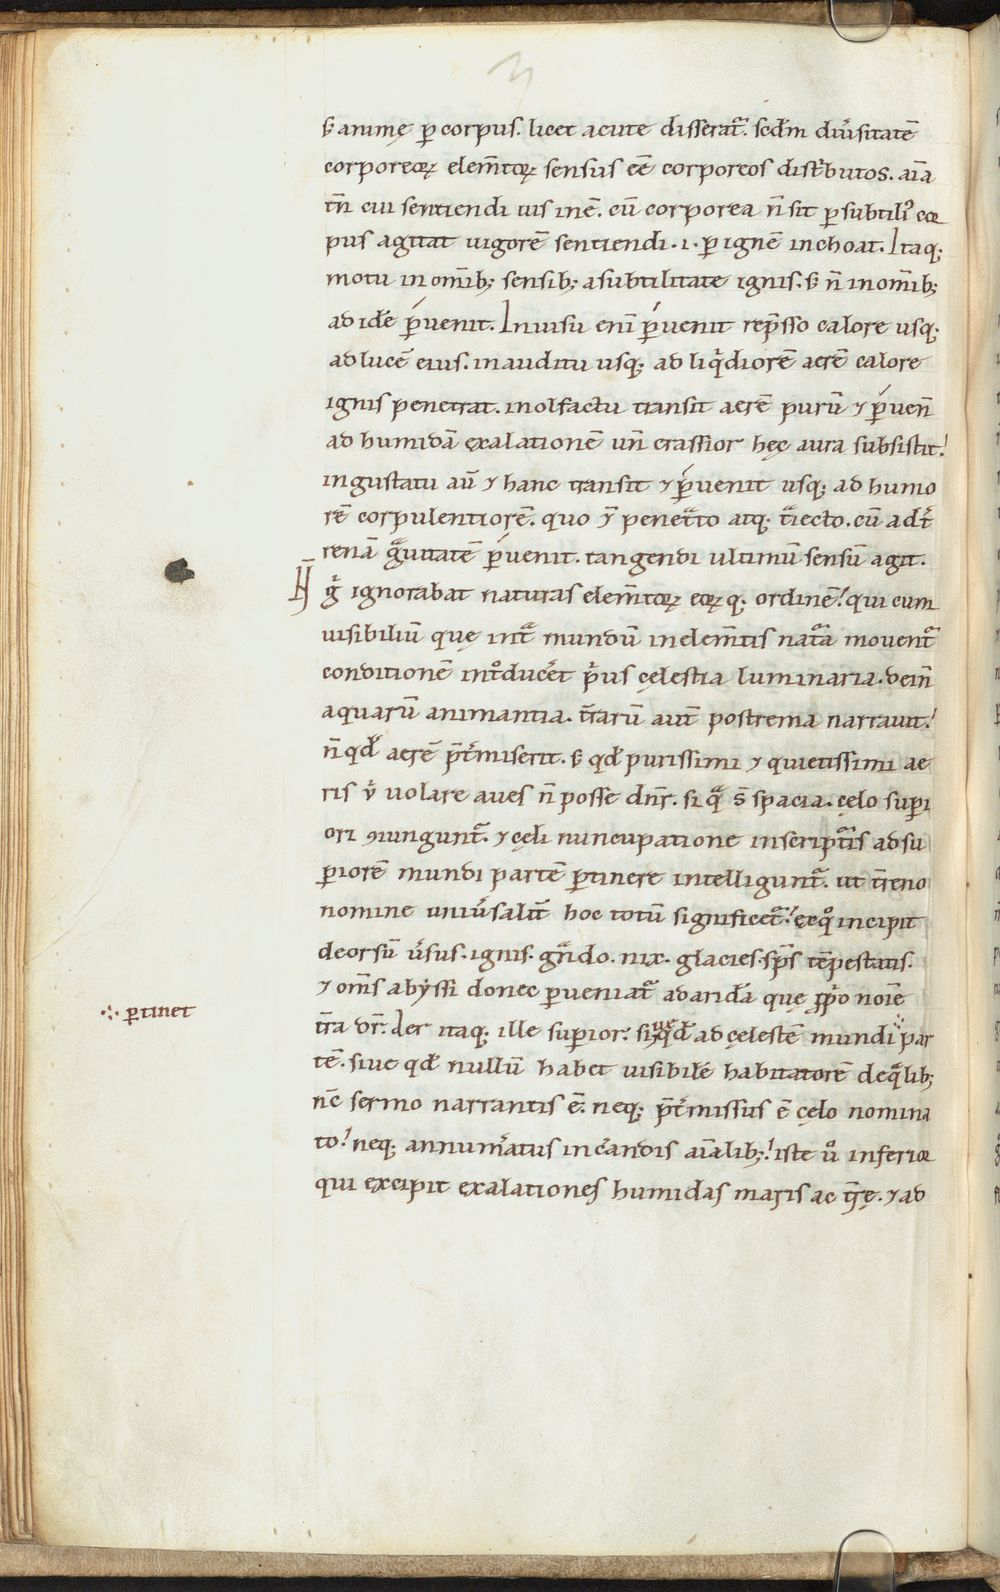 s̄ animę ꝑ corpus. licet acute disserat᷑. scd̄m diu̾sitatē
corporeoꝝ elem̄toꝝ sensus eē corporeos distͥbutos. aīa
tn̄ cui sentiendi uis inē. cū corporea n̄ sit ꝑ subtiliꝰ cor
pus agitat uigorē sentiendi .i. ꝑ ignē inchoat. Itaq;
motu in om̄ib; sensib; a subtilitate ignis. s̄ n̄ in om̄ib;
ad idē ꝑuenit. In uisu eni̅ ꝑuenit rep̄sso calore usq;
ad lucē eius. in auditu usq; ad liqͥdiorē aerē calore
ignis penetrat. in olfactu transit aerē purū ⁊ ꝑuen̄
ad humidā exalationē un̄ crassior hęc aura subsistit.
in gustatu au̅ ⁊ hanc transit ⁊ ꝑuenit usq; ad humo
rē corpulentiorē. quo ⁊̄ penetᷓto atq; tᷓiecto. cū ad t̾
renā gᷓuitatē ꝑuenit. tangendi ultimū sensū agit.
N̄
gͥ ignorabat naturas elem̄toꝝ eoꝝq; ordinē. qui cum
uisibiliū quę intᷓ mundū in elem̄tis natᷓa mouent᷑
conditionē intͦduc̾et pͥus cęlestia luminaria. dein̄
aquarū animantia. t̄rarū aut̄ postrema narrauit.
n̄ qd̾ aerē p̄t̾miserit. s̄ qd̾ purissimi ⁊ quietissimi ae
ris uͥ uolare aues n̄ posse dn̄r. si qᷓ s̄ spacia. cęlo supi
ori ꝯiungunt᷑. ⁊ cęli nuncupatione in scriptᷓis ad su
ꝑiorē mundi partē ꝑtinere intelligunt᷑. ut t̄reno
nomine uniu̾salit̄ hoc totū significet᷑. ex qͦ incipit
deorsū u̾sus. ignis. gᷓndo. nix. glacies. sp̄s tēpestatis.
⁊ om̄s abẏssi donec ꝑueniat᷑ ad aridā quę ꝓpͥo noīe
t̄ra dr̄. Aer itaq; ille suꝑior. siue qd̾ ad cęlestē mundi ⁘ par
⁘ ꝑtinet
tē. siue qd̾ nullū habet uisibilē habitatorē de qͣlib;
nc̄ sermo narrantis ē. neq; p̄t̾missus ē cęlo nomina
to. neq; annum̾atus in c̾andis aīalib;. iste uͦ inferior
qui excipit exalationes humidas maris ac t̄rę. ⁊ ad